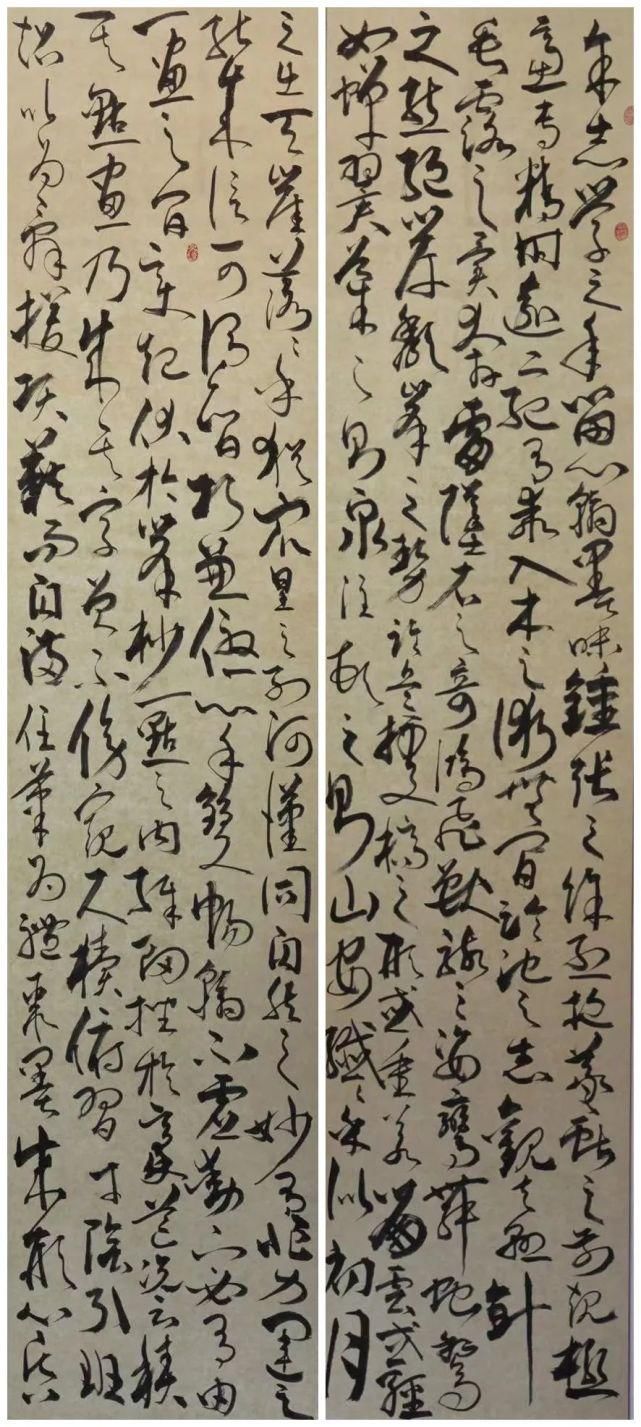 余志學之年留心翰墨味鍾張之餘烈挹羲獻之前規極
慮專精時逾二紀有乖入木之術無間臨池之志觀夫懸針
垂露之異奔雷墜石之奇鴻飛獸駭之姿鸞舞蛇驚
之態絕岸頹峯之勢臨危據槁之形或重若崩雲或輕
如蟬翼導之則泉注頓之則山安纖纖乎似初月
之出天崖落落乎猶眾星之列河漢同自然之妙有非力運之
能成信可謂智巧兼優心手雙暢翰不虛動下必有由
一畫之間變起伏於峯杪一點之內殊衄挫於毫芒況云積
其點畫乃成其字曾不傍窺尺牘俯習寸陰引班
超以為辭援項籍而自滿任筆為體聚墨成形心昏